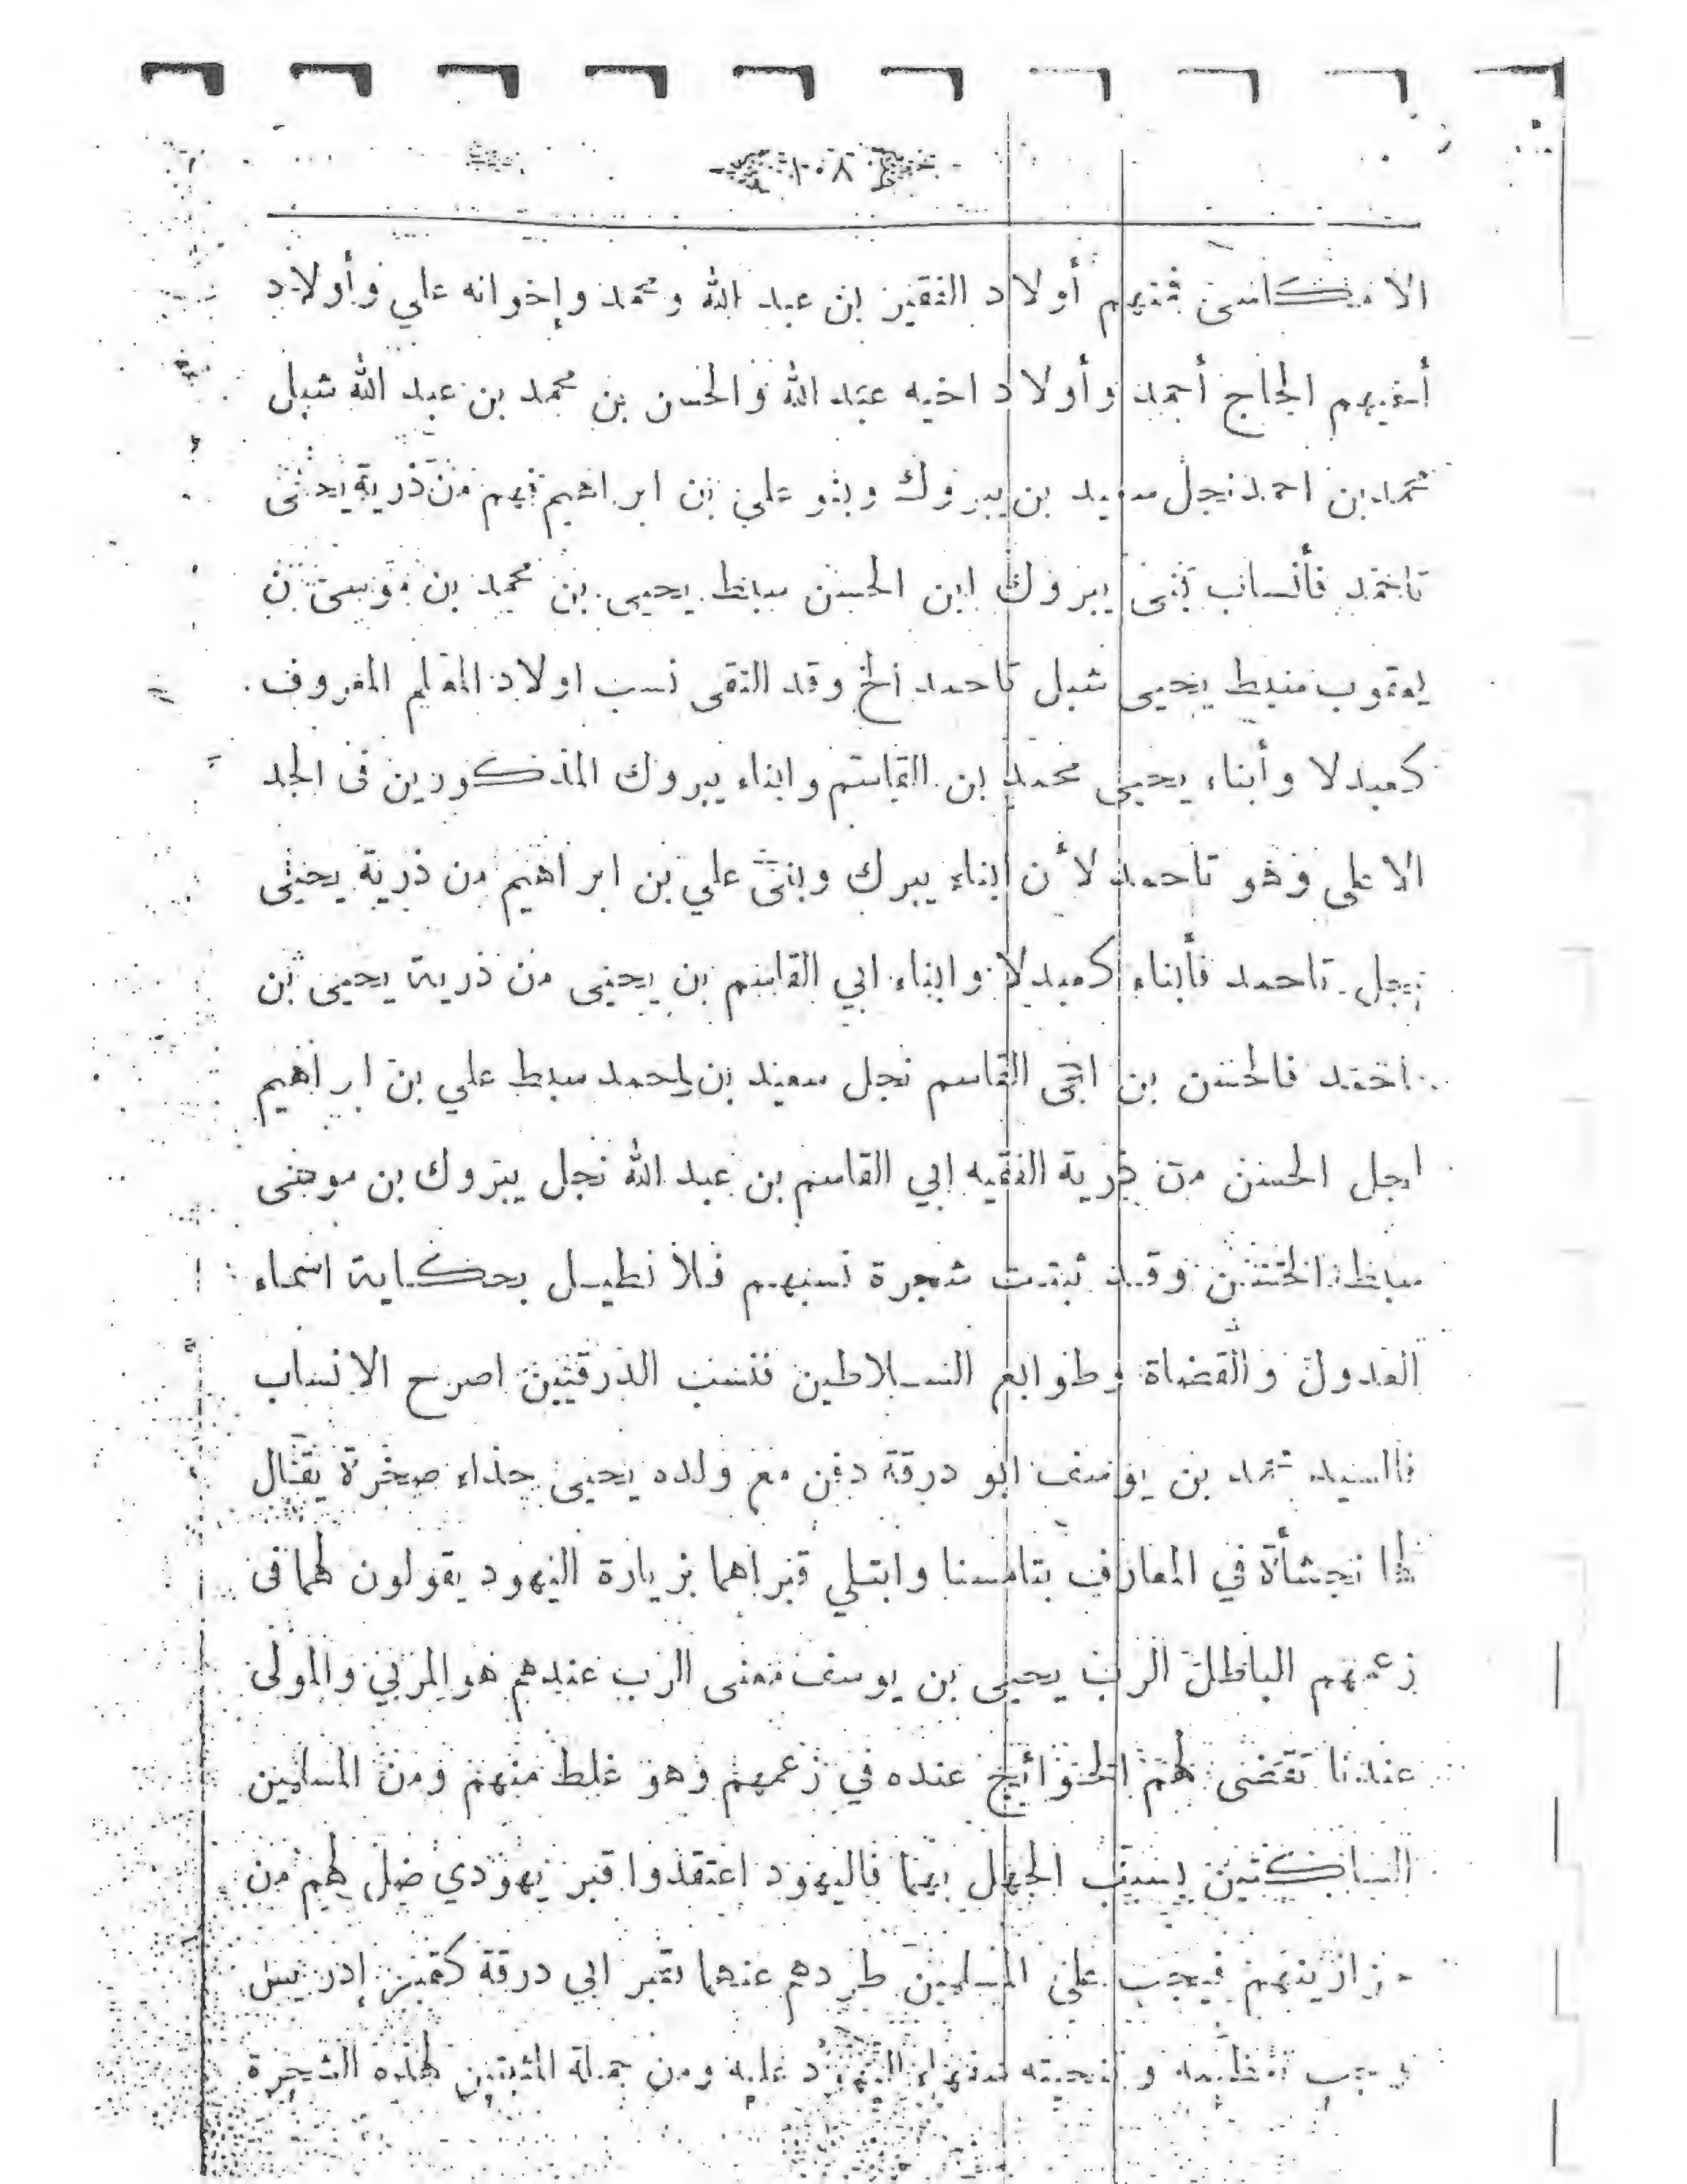 ١٠٨
فمنهم أولاد الفقير بن عبد الله ومحمد وإخوانه علي وأولاد
أخيهم الحاج أحمد وأولاد اخيه عبد الله والحسن بن محمد بن عبد الله شبل
محمد بن احمد نجل سعيد بن يبروك وبنو علي بن ابراهيم فهم من ذرية يحيى
تاحمد فأنساب بنى يبروك ابن الحسن سبط يحيى بن محمد بن موسى بن
يعقوب سبط يحيى شبل تاحمد الخ وقد التقى نسب اولاد المعلم المعروف
كعبدلا وأبناء يحيى محمد بن القاسم وابناء يبروك المذكورين فى الجد
الاعلى وهو تاحمد لأن ابناء يبرك وبنى علي بن ابراهيم من ذرية يحيى
نجل تاحمد فأبناء كعبدلا وابناء ابي القاسم بن يحيى من ذرية يحيى بن
احمد فالحسن بن ابى القاسم نجل سعيد بن احمد سبط علي بن ابراهيم
نجل الحسن من ذرية الفقيه ابي القاسم بن عبد الله نجل يبروك بن موسى
سبط الحسن وقد ثبتت شجرة نسبهم فلا نطيل بحكاية اسماء
العدول والقضاة وطوابع السلاطين فنسب الدرقيين اصرح الانساب
فالسيد محمد بن يوسف ابو درقة دفن مع ولده يحيى حذاء صخرة يقال
لها نجشأة في المعارف بتامسنا وابتلي قبراهما بزيارة اليهود يقولون لهما فى
زعمهم الباطل الرب يحيى بن يوسف فمعنى الرب عندهم هو المربي والمولى
عندنا تقضى لهم الحوائج عنده في زعمهم وهو غلط منهم ومن المسلمين
الساكتين بسبب الجهل بهما فاليهود اعتقدوا قبر يهودي ضل لهم من
زار ينهم فيجب على المسلمين طردهم عنهما فقبر ابي درقة كقبر إدريس
يجب تعظيمه و اليهود عليه ومن جملة المثبتين لهذه الشجرة